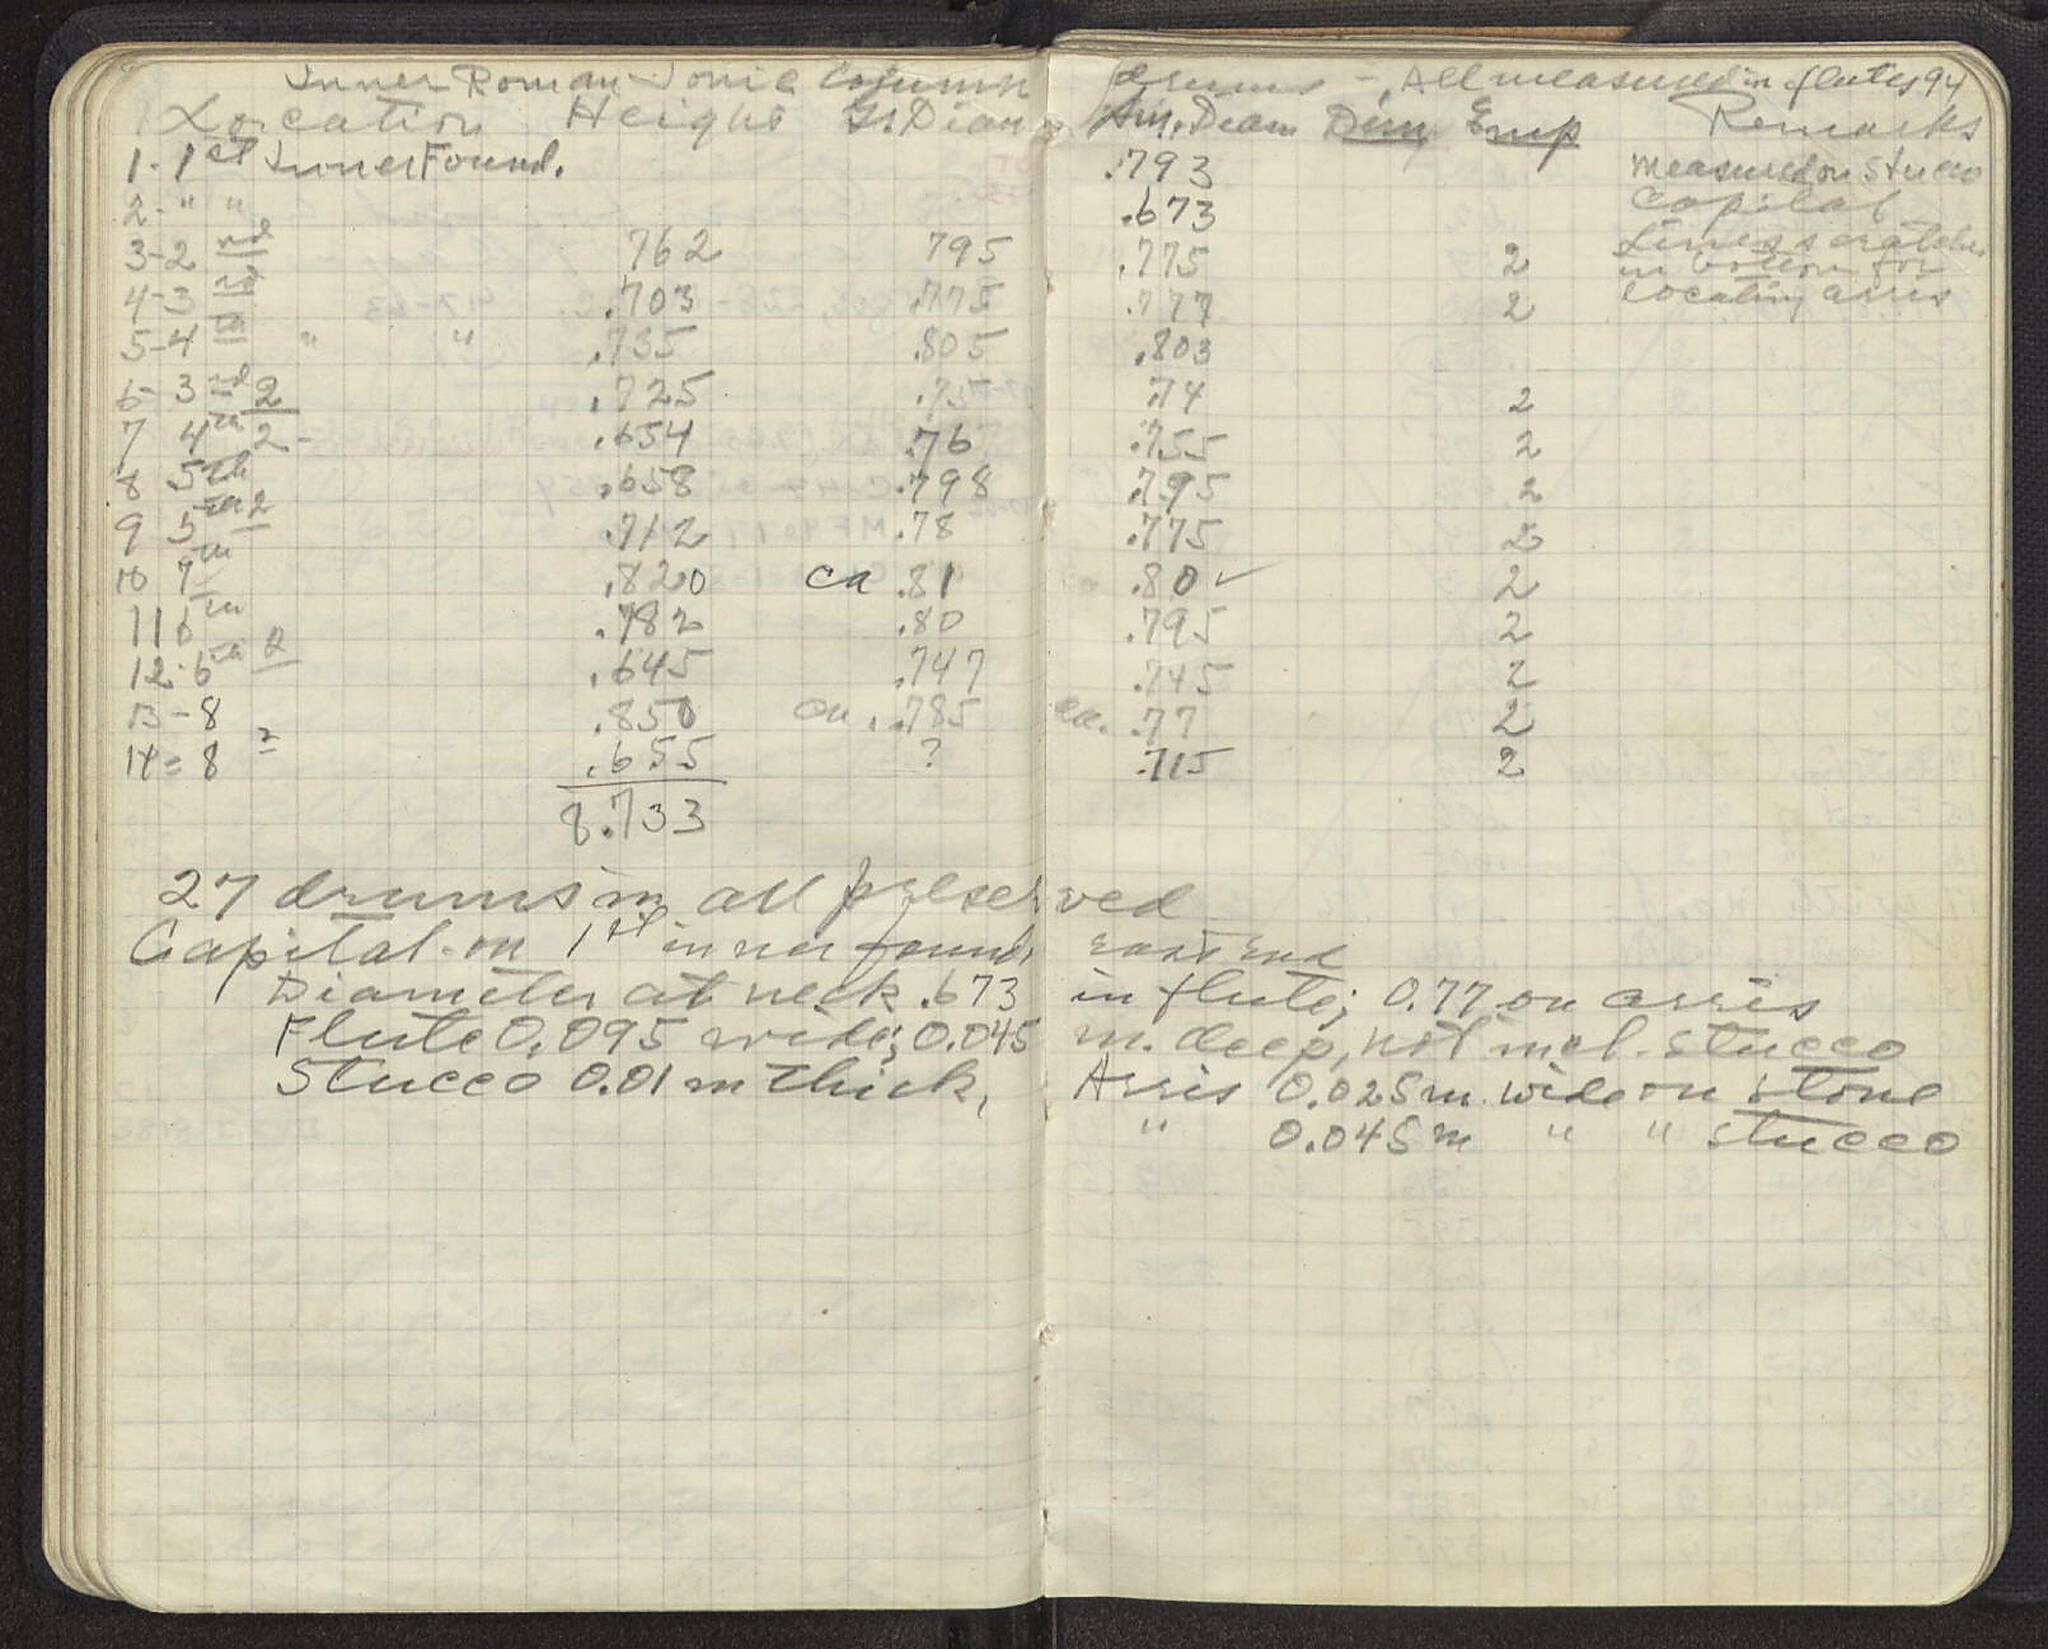 Inner Roman Ionic Column drums - All measured in flutes 94
Location Height Gr. Diam Sm. Deam Dim Emp Remarks
1-1st Inner Found. .793 Measured on Stucco
2- " " .673 Capital
3-2nd 762 795 .775 2 Lines scratched
4-3rd .703 .775 .777 2 in bottom for
locating arris
5-4th " " .735 .805 .803
6-3rd 2 .725 .75 .74 2
7 4th 2- .654 .76 .755 2
8 5th .658 .798 .795 2
9 5th 2 .712 .78 .775 2
10 7th .820 ca .81 .80 ✓ 2
11 6th .782 .80 .795 2
12-6th 2 .645 .747 .745 2
13-8 .850 ca. .785 ca. .77 2
14=8 2 .655 ? .715 2
8.733
27 drums in all preserved
Capital on 1st inner found, east end
Diameter at neck .673 in flute; 0.77 on arris
Flute 0.095 wide; 0.045 m. deep, not incl. stucco
Stucco 0.01 m thick, Arris 0.025 m. wide on stone
" 0.045 m " " stucco